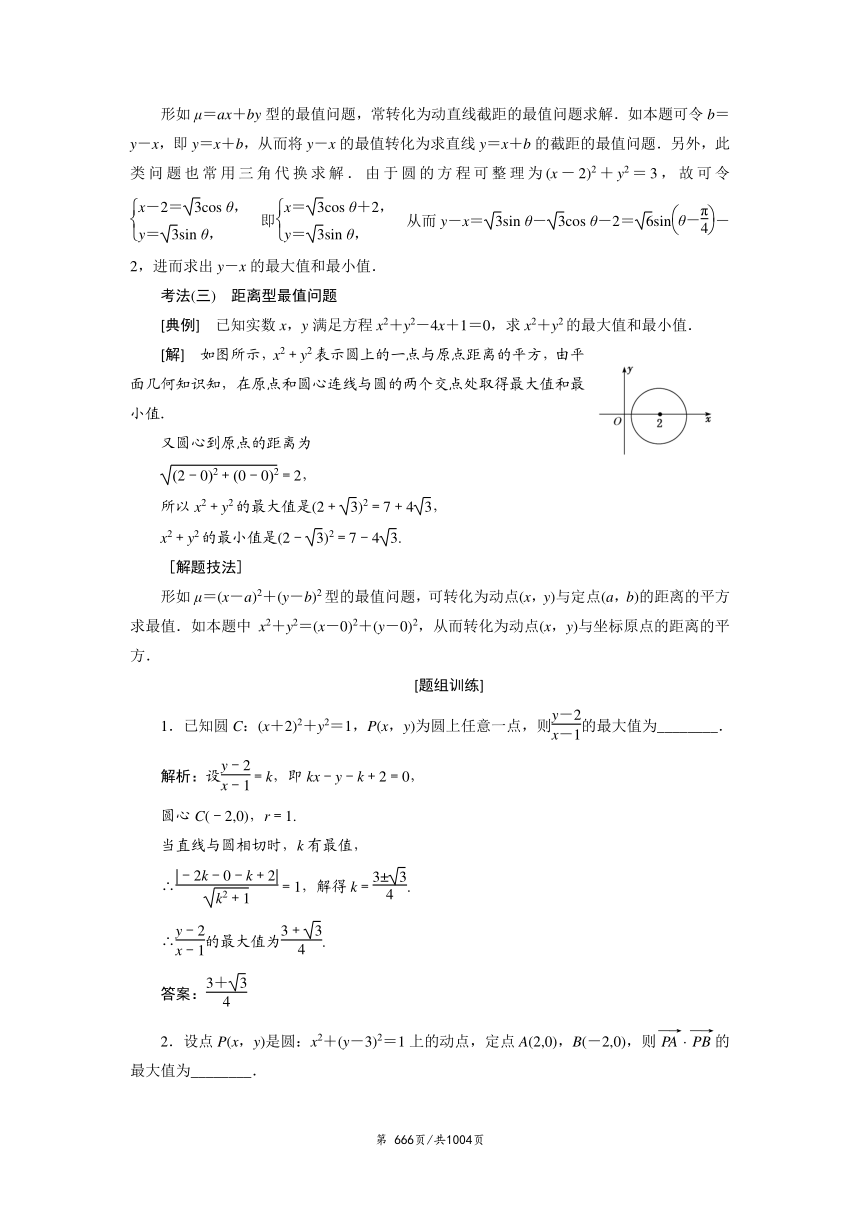 形如 μ＝ax＋by 型的最值问题，常转化为动直线截距的最值问题求解．如本题可令 b＝
y－x，即 y＝x＋b，从而将 y－x 的最值转化为求直线 y＝x＋b 的截距的最值问题．另外，此
类问题也常用三角代换求解．由于圆的方程可整理为(x－2)²＋y²＝3，故可令
{x－2＝√3cos θ，y＝√3sin θ， 即{x＝√3cos θ＋2，y＝√3sin θ， 从而 y－x＝√3sin θ－√3cos θ－2＝√6sin(θ－π/4)－
2，进而求出 y－x 的最大值和最小值．
考法(三)　距离型最值问题
[典例]　已知实数 x，y 满足方程 x²＋y²－4x＋1＝0，求 x²＋y² 的最大值和最小值．
[解]　如图所示，x²＋y² 表示圆上的一点与原点距离的平方，由平
面几何知识知，在原点和圆心连线与圆的两个交点处取得最大值和最
小值．
y
O
2
x
又圆心到原点的距离为
√((2－0)²＋(0－0)²)＝2，
所以 x²＋y² 的最大值是(2＋√3)²＝7＋4√3，
x²＋y² 的最小值是(2－√3)²＝7－4√3.
［解题技法］
形如 μ＝(x－a)²＋(y－b)² 型的最值问题，可转化为动点(x，y)与定点(a，b)的距离的平方
求最值．如本题中 x²＋y²＝(x－0)²＋(y－0)²，从而转化为动点(x，y)与坐标原点的距离的平
方．
[题组训练]
1．已知圆 C：(x＋2)²＋y²＝1，P(x，y)为圆上任意一点，则(y－2)/(x－1)的最大值为________．
解析：设(y－2)/(x－1)＝k，即 kx－y－k＋2＝0，
圆心 C(－2,0)，r＝1.
当直线与圆相切时，k 有最值，
∴|－2k－0－k＋2|/√(k²＋1)＝1，解得 k＝(3±√3)/4.
∴(y－2)/(x－1)的最大值为(3＋√3)/4.
答案：(3＋√3)/4
2．设点 P(x，y)是圆：x²＋(y－3)²＝1 上的动点，定点 A(2,0)，B(－2,0)，则 PA→·PB→ 的
最大值为________．
第 666页/共1004页